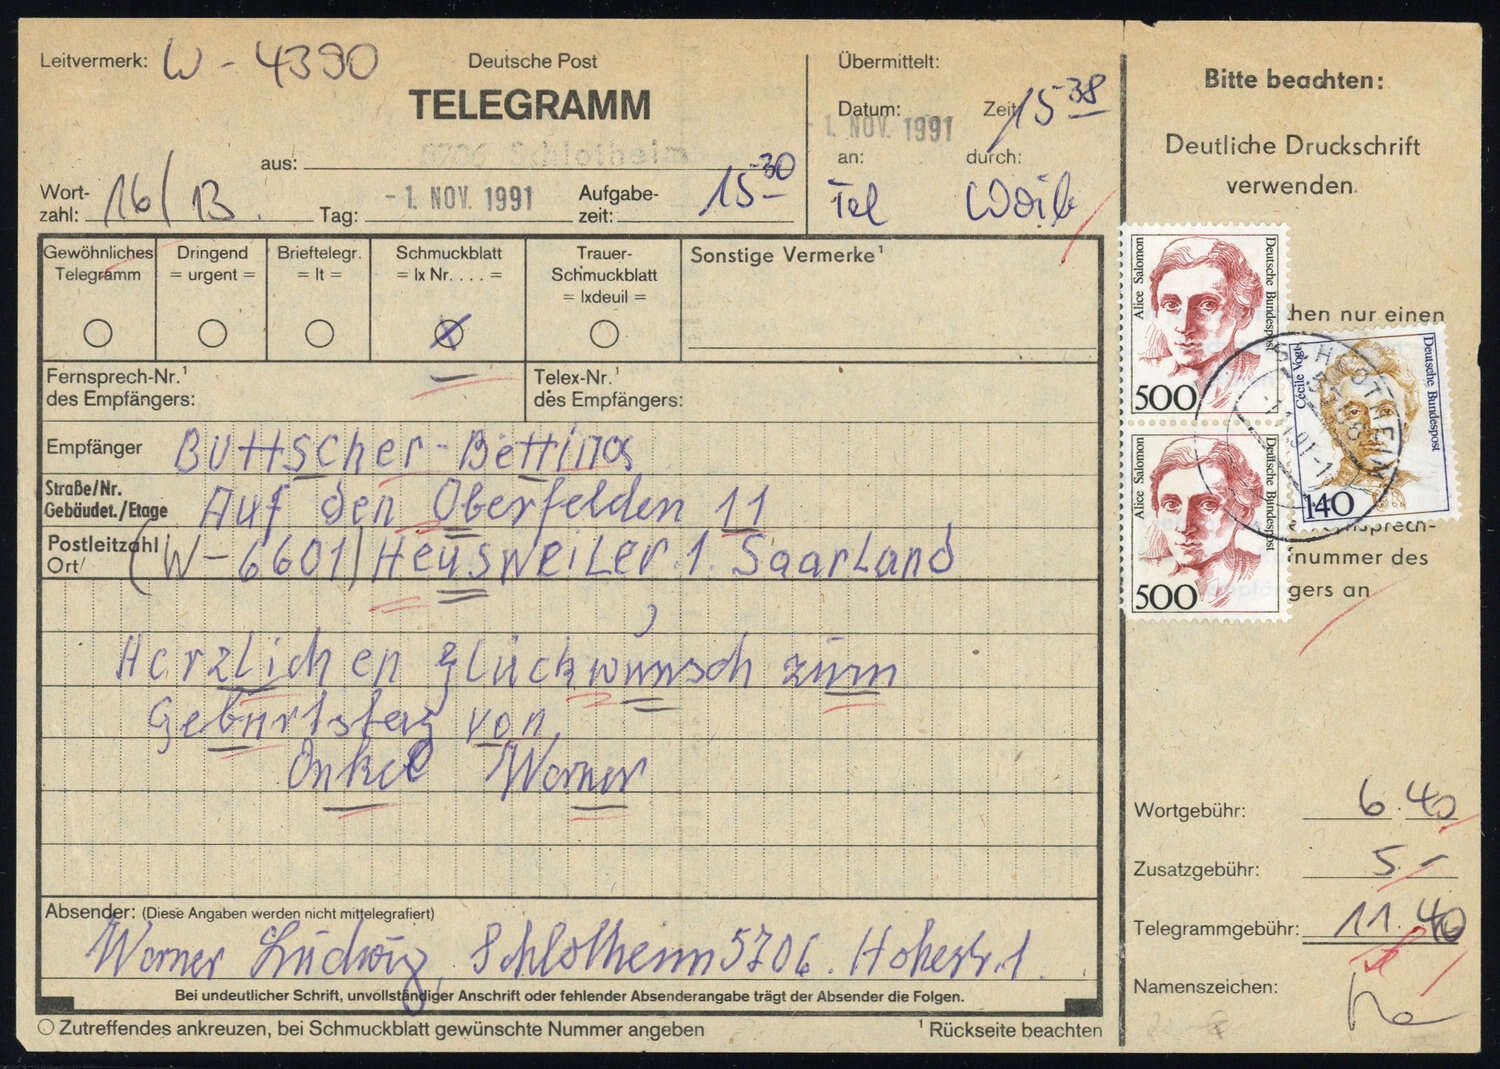 Leitvermerk: W - 4390
Deutsche Post
TELEGRAMM
aus: 5706 Schlotheim
Wort-
zahl: 16/13
Tag: -1. NOV. 1991
Aufgabe-
zeit: 15 30
Übermittelt:
Datum: -1. NOV. 1991 Zeit 15 38
an: durch:
Tel
Gewöhnliches
Telegramm
Dringend
= urgent =
Brieftelegr.
= lt =
Schmuckblatt
= lx Nr. . . . =
Trauer-
Schmuckblatt
= lxdeuil =
Sonstige Vermerke¹
Fernsprech-Nr.¹
des Empfängers:
Telex-Nr.¹
des Empfängers:
Empfänger Buttscher-Bettina
Straße/Nr.
Gebäudet./Etage Auf den Oberfelden 11
Postleitzahl
Ort/ (W-6601) Heusweiler.1. Saarland
Herzlichen glückwunsch zum
Geburtstag von
Onkel Werner
Absender: (Diese Angaben werden nicht mittelegrafiert)
Werner Ludwig, Schlotheim 5706. Hohestr.1.
Bei undeutlicher Schrift, unvollständiger Anschrift oder fehlender Absenderangabe trägt der Absender die Folgen.
Zutreffendes ankreuzen, bei Schmuckblatt gewünschte Nummer angeben
¹ Rückseite beachten
Bitte beachten:
Deutliche Druckschrift
verwenden.
Alice Salomon
Deutsche Bundespost
500
hen nur einen
Cécile Vogt
Deutsche Bundespost
140
SCHLOTHEIM
5706
Alice Salomon
Deutsche Bundespost
500
sprech-
nummer des
gers an
Wortgebühr: 6.40
Zusatzgebühr: 5.-
Telegrammgebühr: 11.40
Namenszeichen: